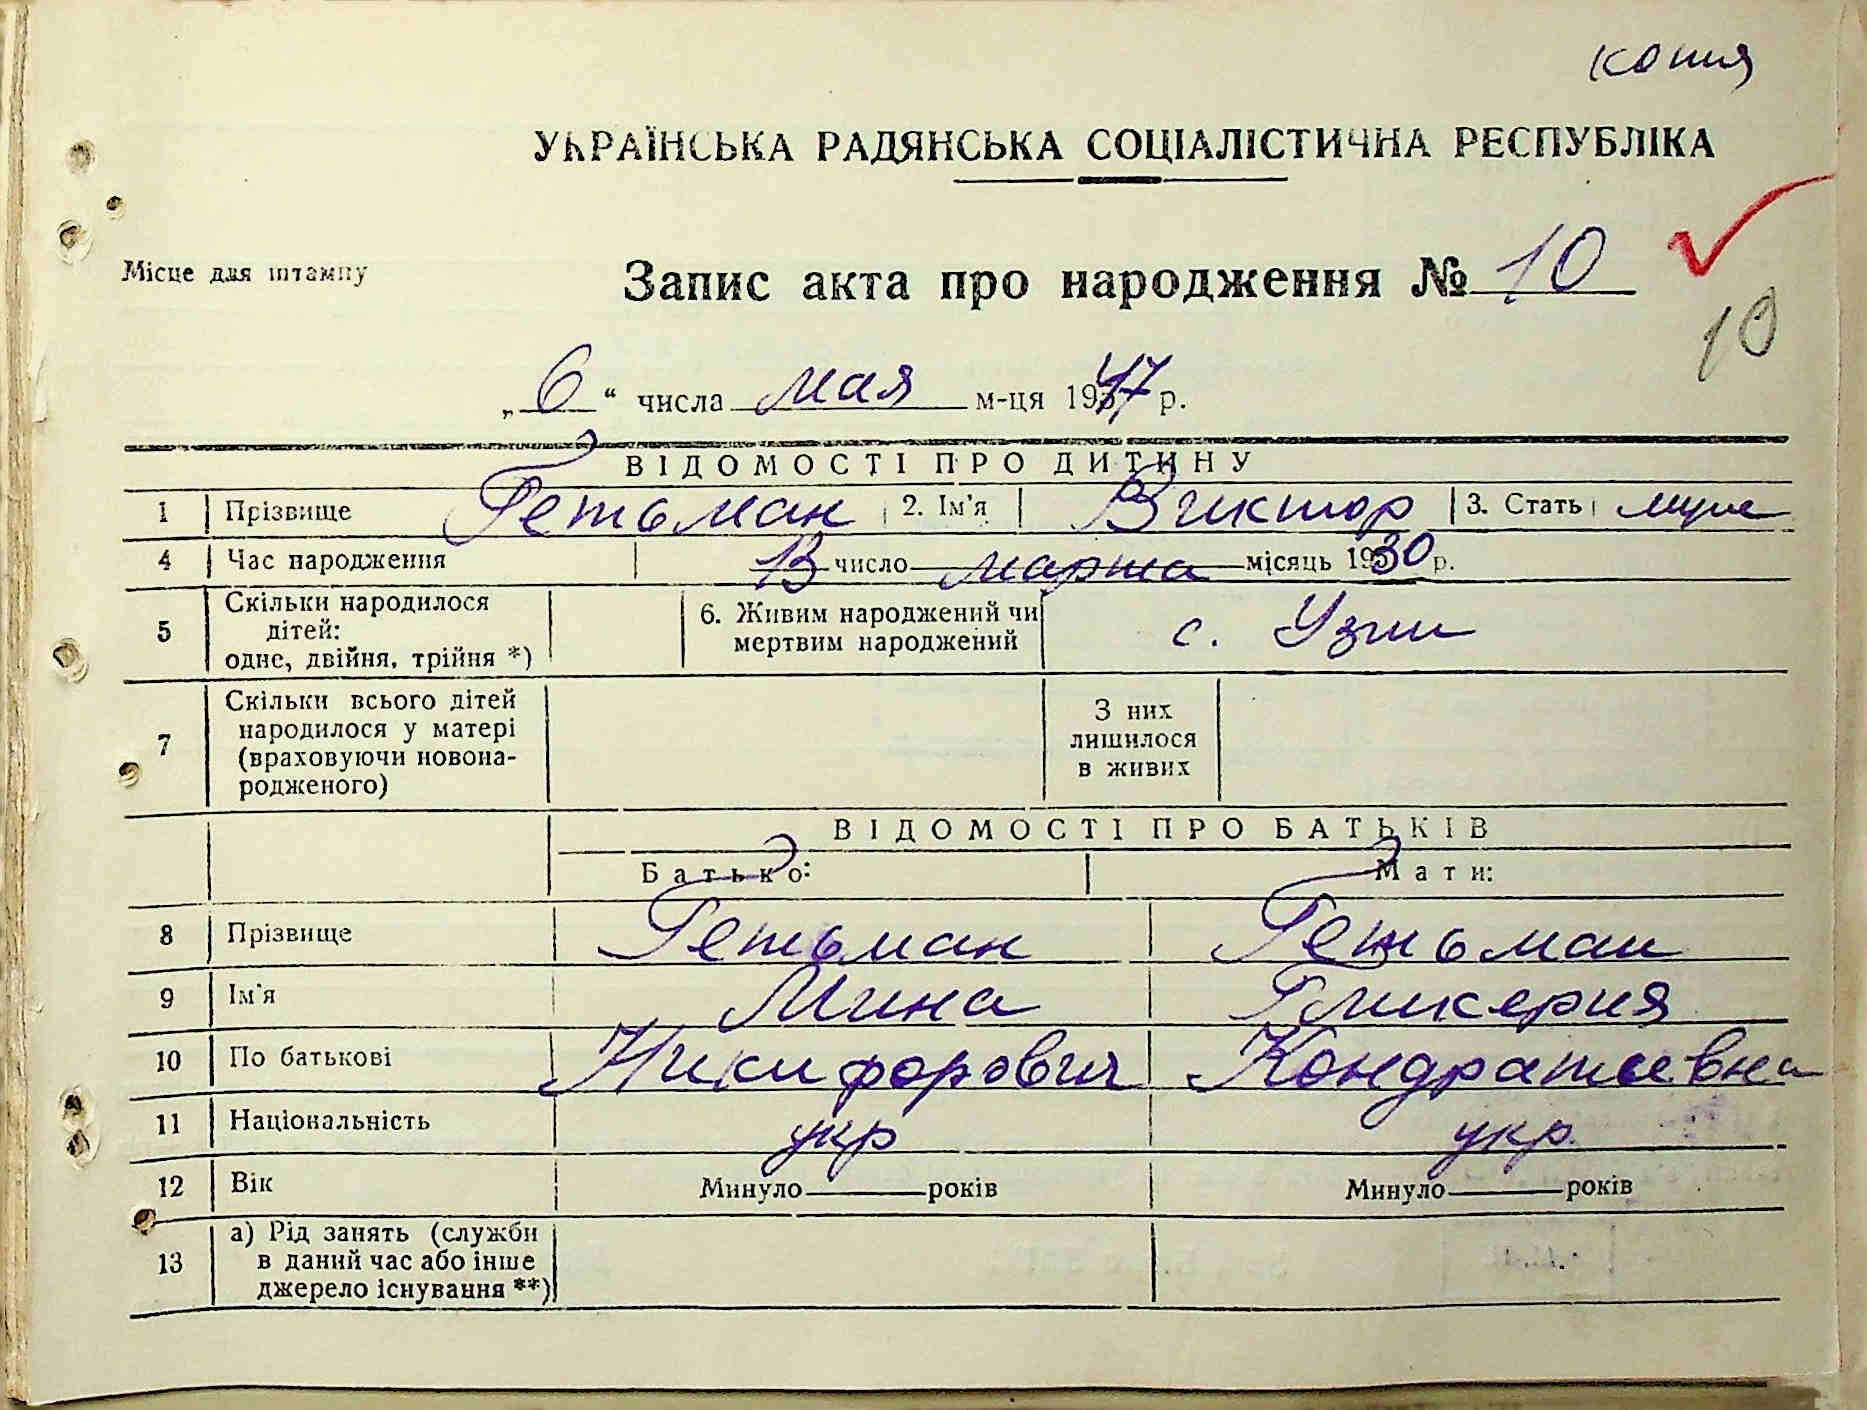 копия
УКРАЇНСЬКА РАДЯНСЬКА СОЦІАЛІСТИЧНА РЕСПУБЛІКА
Місце для штампу
Запис акта про народження № 10
10
„6“ числа мая м-ця 1947 р.
ВІДОМОСТІ ПРО ДИТИНУ
1 Прізвище Гетьман 2. Ім'я Виктор 3. Стать муж
4 Час народження 13 число марта місяць 1930 р.
5 Скільки народилося дітей: одне, двійня, трійня *) 6. Живим народжений чи мертвим народжений с. Узин
7 Скільки всього дітей народилося у матері (враховуючи новонародженого) З них лишилося в живих
ВІДОМОСТІ ПРО БАТЬКІВ
Батько: Мати:
8 Прізвище Гетьман Гетьман
9 Ім'я Мина Гликерия
10 По батькові Никифорович Кондратьевна
11 Національність укр укр.
12 Вік Минуло років Минуло років
13 а) Рід занять (служби в даний час або інше джерело існування **)